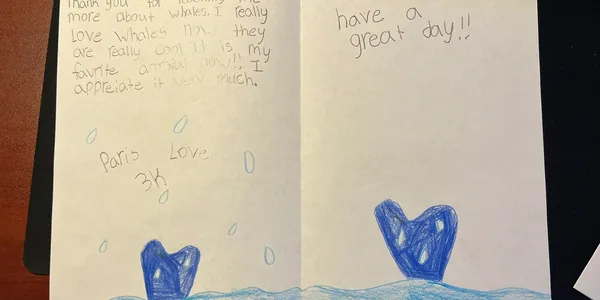 Thank you for teaching me
more about whales. I really
Love whales now they
are really cool it is my
favrite animal now!! I
appreiate it very much.
Paris Love
3K
have a
great day!!